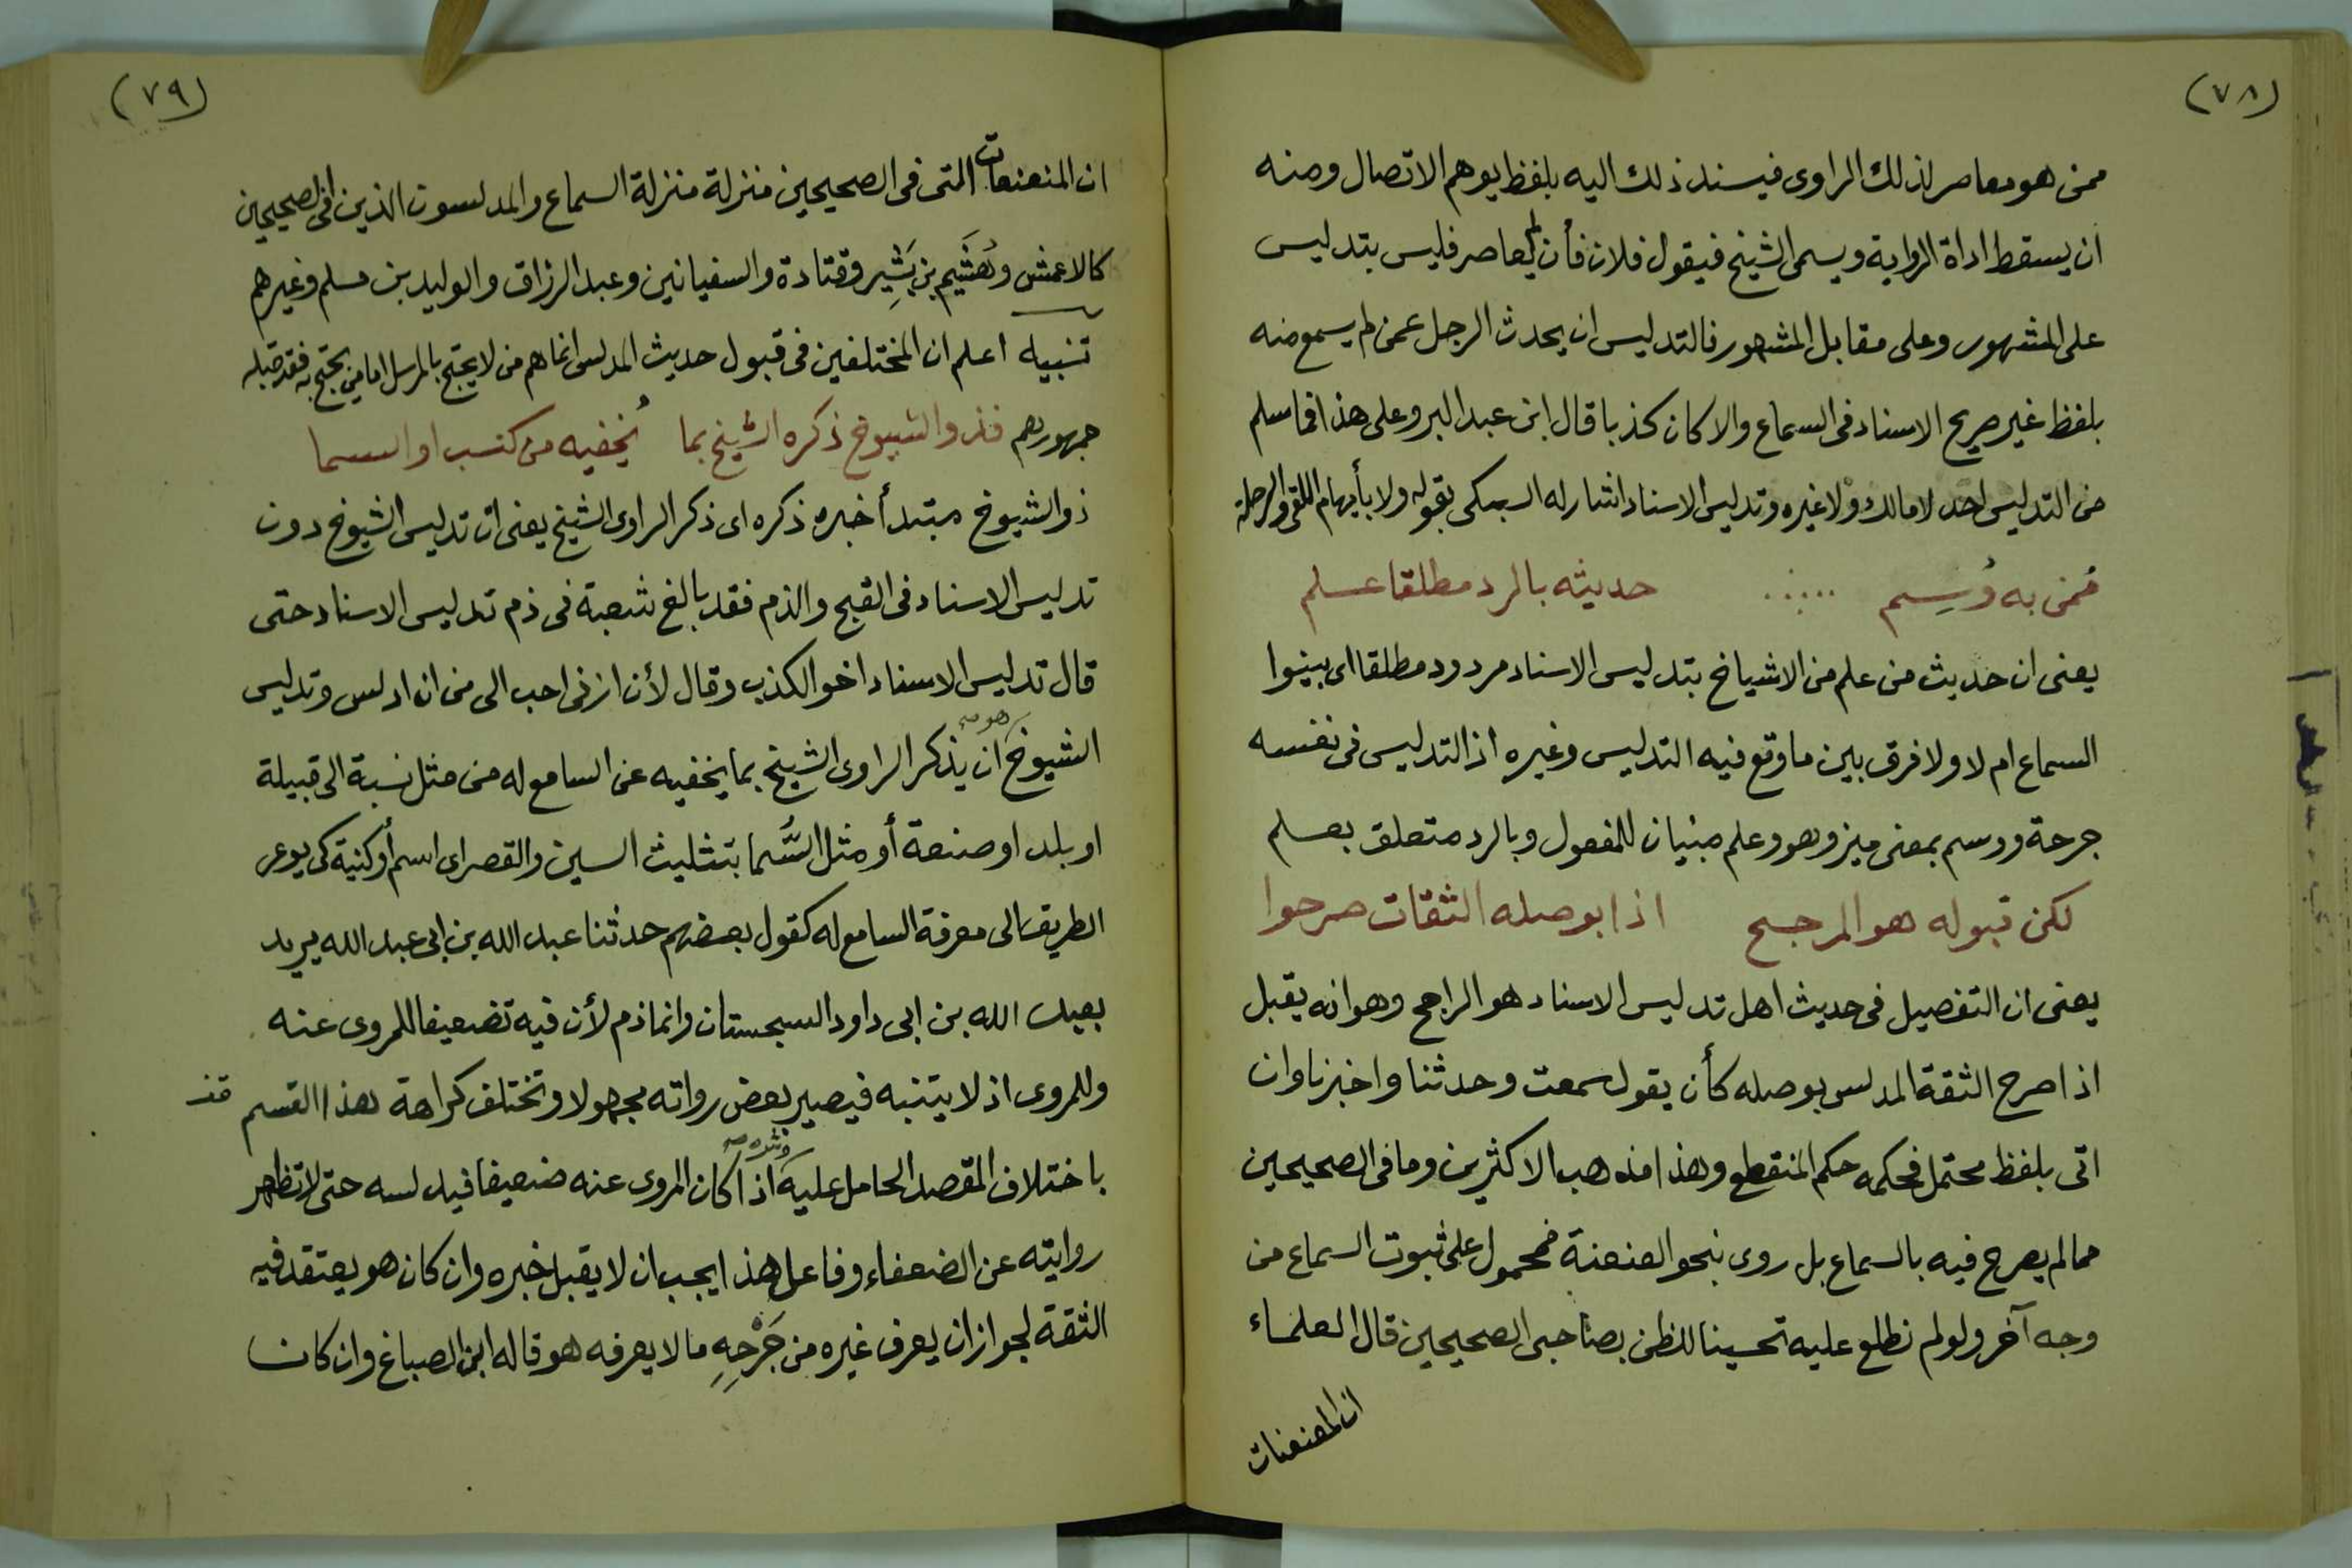 (٧٨)
ممن هو معاصر لذلك الراوى فيسند ذلك اليه بلفظ يوهم الاتصال ومنه
ان يسقط اداة الرواية ويسمى الشيخ فيقول فلان فأن لم يعاصر فليس بتدليس
على المشهور وعلى مقابل المشهور فالتدليس ان يحدث الرجل عمن لم يسمع منه
بلفظ غير صريح الاسناد فى السماع والا كان كذبا قال ابن عبد البر وعلى هذا فما سلم
من التدليس احد لا مالك ولا غيره وتدليس الاسناد اشار له السبكى بقوله ولا بأيهام اللقى والرحلة
فمن به وُسِم حديثه بالرد مطلقا علم
يعنى ان حديث من علم من الاشياخ بتدليس الاسناد مردود مطلقا اى بينوا
السماع ام لا ولا فرق بين ما وقع فيه التدليس وغيره اذ التدليس فى نفسه
جرحة ووسم بمعنى ميز وهو وعلم مبنيان للمفعول وبالرد متعلق بعلم
لكن قبوله هو المرجح اذا بوصله الثقات صرحوا
يعنى ان التفصيل فى حديث اهل تدليس الاسناد هو الراجح وهو انه يقبل
اذا صرح الثقة المدلس بوصله كأن يقول سمعت وحدثنا واخبرنا وان
اتى بلفظ محتمل فحكمه حكم المنقطع وهذا مذهب الاكثرين وما فى الصحيحين
مما لم يصرح فيه بالسماع بل روى بنحو العنعنة فمحمول على ثبوت السماع من
وجه آخر ولو لم نطلع عليه تحسينا للظن بصاحبى الصحيحين قال العلماء
ان المعنعنات
(٧٩)
ان المنعنعات التى فى الصحيحين منزلة منزلة السماع والمدلسون الذين فى الصحيحين
كالاعمش وهُشَيم بن بَشِير وقتادة والسفيانين وعبد الرزاق والوليد بن مسلم وغيرهم
تنبيه اعلم ان المختلفين فى قبول حديث المدلس انما هم من لا يحتج بالمرسل اما من يحتج به فقد قبله
جمهورهم فذو الشيوخ ذكره الشيخ بما يُخفيه من كنسب او السما
ذو الشيوخ مبتدأ خبره ذكره اى ذكر الراوى الشيخ يعنى ان تدليس الشيوخ دون
تدليس الاسناد فى القبح والذم فقد بالغ شعبة فى ذم تدليس الاسناد حتى
قال تدليس الاسناد اخو الكذب وقال لأن ازنى احب الى من ان ادلس وتدليس
هو صح
الشيوخ ان يذكر الراوى الشيخ بما يخفيه عن السامع له من مثل نسبة الى قبيلة
او بلد او صنعة أو مثل السُّما بتثليث السين والقصر اى اسم أو كنية كى يوعر
الطريق الى معرفة السامع له كقول بعضهم حدثنا عبد الله بن ابى عبد الله يريد
بعبد الله بن ابى داود السجستان وانما ذم لأن فيه تضعيفا للمروى عنه
وللمروى اذ لا يتنبه فيصير بعض رواته مجهولا وتختلف كراهة هذا القسم
باختلاف المقصد الحامل عليه اذا كان المروى عنه ضعيفا فيدلسه حتى لا تظهر
روايته عن الضعفاء وفاعل هذا يجب ان لا يقبل خبره وان كان هو يعتقد فيه
الثقة لجواز ان يعرف غيره من جَرْحِهِ ما لا يعرفه هو قاله ابن الصباغ وان كان